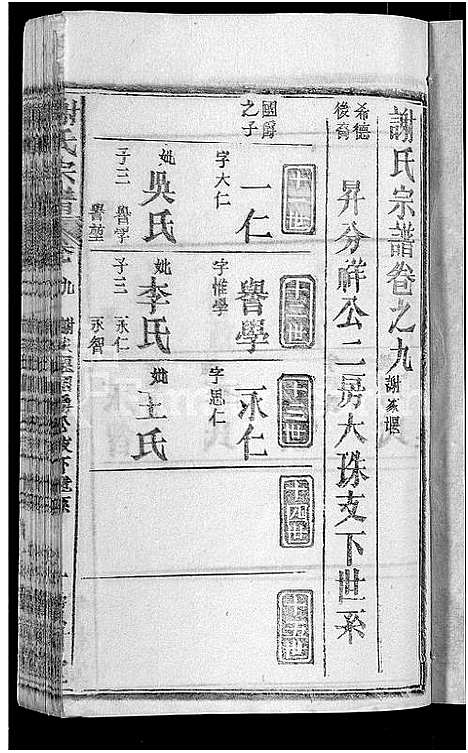 謝氏宗譜卷之九 謝家堰
希德後裔
昇分祥公二房大珠支下世系
十一世
十二世
十三世
十四世
十五世
國爵之子
一仁
字大仁
妣吳氏
子二 譽學 譽堂
譽學
字惟學
妣李氏
子二 永仁 永智
永仁
字思仁
妣王氏
謝氏宗譜 卷之九